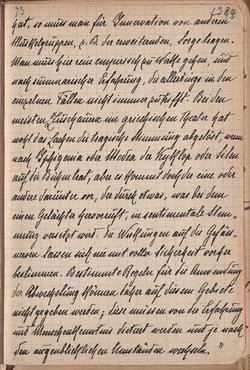 73 (384
hat, so muss man für Innervation von anderen
Muskelgruppen, z. B. der erwartenden, Sorge tragen.
Man muss hier rein empirisch zu Werke gehen, und
nach summarischer Erfahrung, die allerdings in den
einzelnen Fällen nicht immer zutrifft. Bei den
meisten Zuschauern im griechischen Theater hat
wohl das Lachen die tragische Stimmung abgelöst, wenn
nach Iphigenia oder Medea der Kyklop oder Silen
auf die Bühne trat, aber es kommt doch der eine oder
andere darunter vor, der durch etwas, was bei dem
einen Gelächter hervorruft, in sentimentale Stim-
mung versetzt wird. Die Wirkungen auf das Gefäss-
system lassen sich nie mit voller Sicherheit vorher
bestimmen. Bestimmte Regeln für die Anwendung
der Abwechslung können daher auf diesem Gebiete
nicht gegeben werden; diese müssen von der Erfahrung
und Menschenkenntnis dictiert werden und je nach
den augenblicklichen Umständen wechseln."